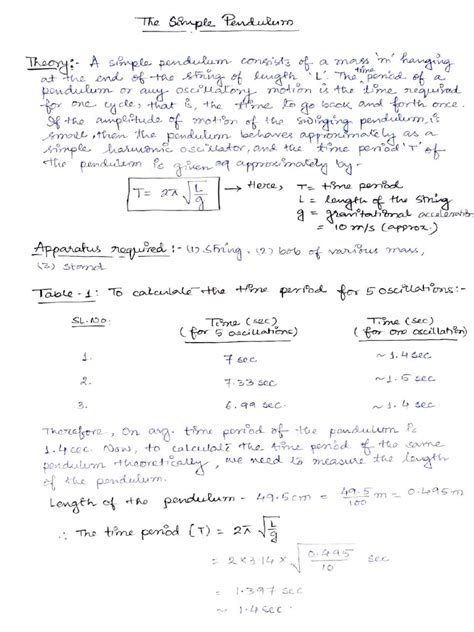 The Simple Pendulum
Theory:- A simple pendulum consists of a mass 'm' hanging
at the end of the string of length 'L'. The time period of a
pendulum or any oscillatory motion is the time required
for one cycle, that is, the time to go back and forth once.
If the amplitude of motion of the swinging pendulum, is
small, then the pendulum behaves approximately as a
simple harmonic oscillator, and the time period 'T' of
the pendulum is given approximately by-
T = 2π √(L/g) → Here, T = time period
L = length of the string
g = gravitational acceleration
= 10 m/s (approx.)
Apparatus required:- (1) String. (2) bob of various mass,
(3) stand
Table-1: To calculate the time period for 5 oscillations:-
SL.No. Time (sec) Time (sec)
(for 5 oscillations) (for one oscillation)
1. 7 sec ~1.4 sec
2. 7.33 sec ~1.5 sec
3. 6.99 sec ~1.4 sec
Therefore, On avg. time period of the pendulum is
1.4 sec. Now, to calculate the time period of the same
pendulum theoretically, we need to measure the length
of the pendulum.
Length of the pendulum - 49.5cm = 49.5/100 m = 0.495m
∴ The time period (T) = 2π √(L/g)
= 2×3.14×√(0.495/10) sec
= 1.397 sec
~ 1.4 sec.